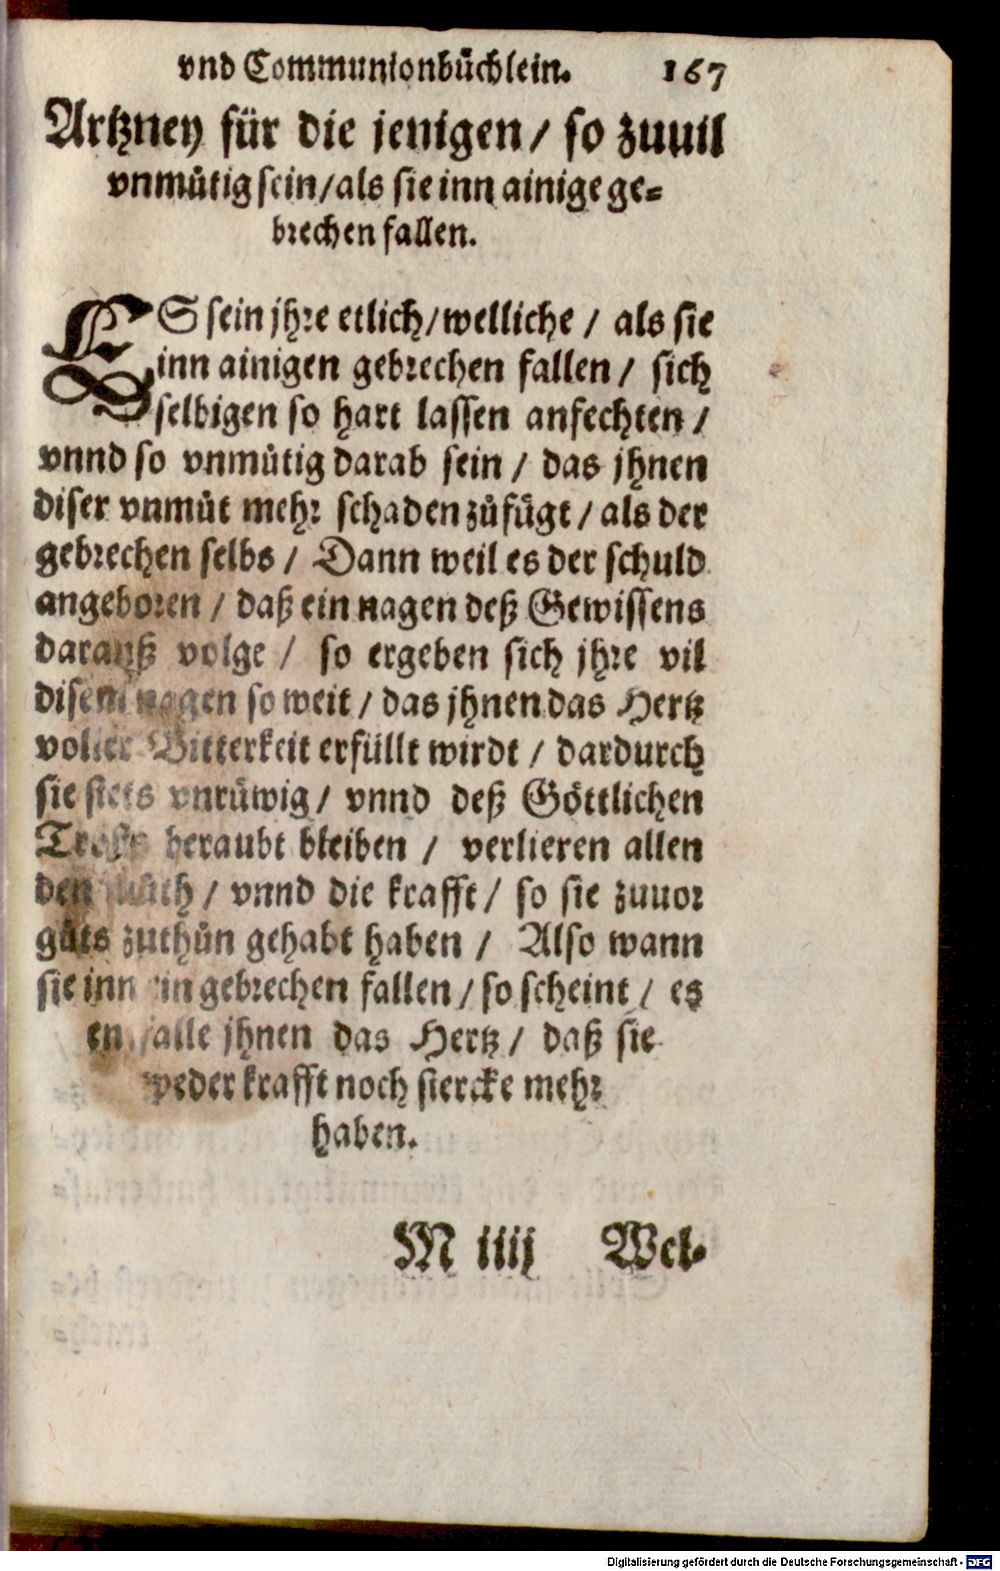 vnd Communionbüchlein. 167
Artzney für die jenigen / so zuuil
vnmůtig sein / als sie inn ainige ge-
brechen fallen.
ES sein jhre etlich / welliche / als sie
inn ainigen gebrechen fallen / sich
selbigen so hart lassen anfechten /
vnnd so vnmůtig darab sein / das jhnen
diser vnmůt mehr schaden zůfůgt / als der
gebrechen selbs / Dann weil es der schuld
angeboren / daß ein nagen deß Gewissens
darauß volge / so ergeben sich jhre vil
disem nagen so weit / das jhnen das Hertz
voller Bitterkeit erfüllt wirdt / dardurch
sie stets vnrůwig / vnnd deß Göttlichen
Trosts beraubt bleiben / verlieren allen
den můth / vnnd die krafft / so sie zuuor
gůts zuthůn gehabt haben / Also wann
sie inn ein gebrechen fallen / so scheint / es
entfalle jhnen das Hertz / daß sie
weder krafft noch stercke mehr
haben.
M iiij Wel-
Digitalisierung gefördert durch die Deutsche Forschungsgemeinschaft - DFG